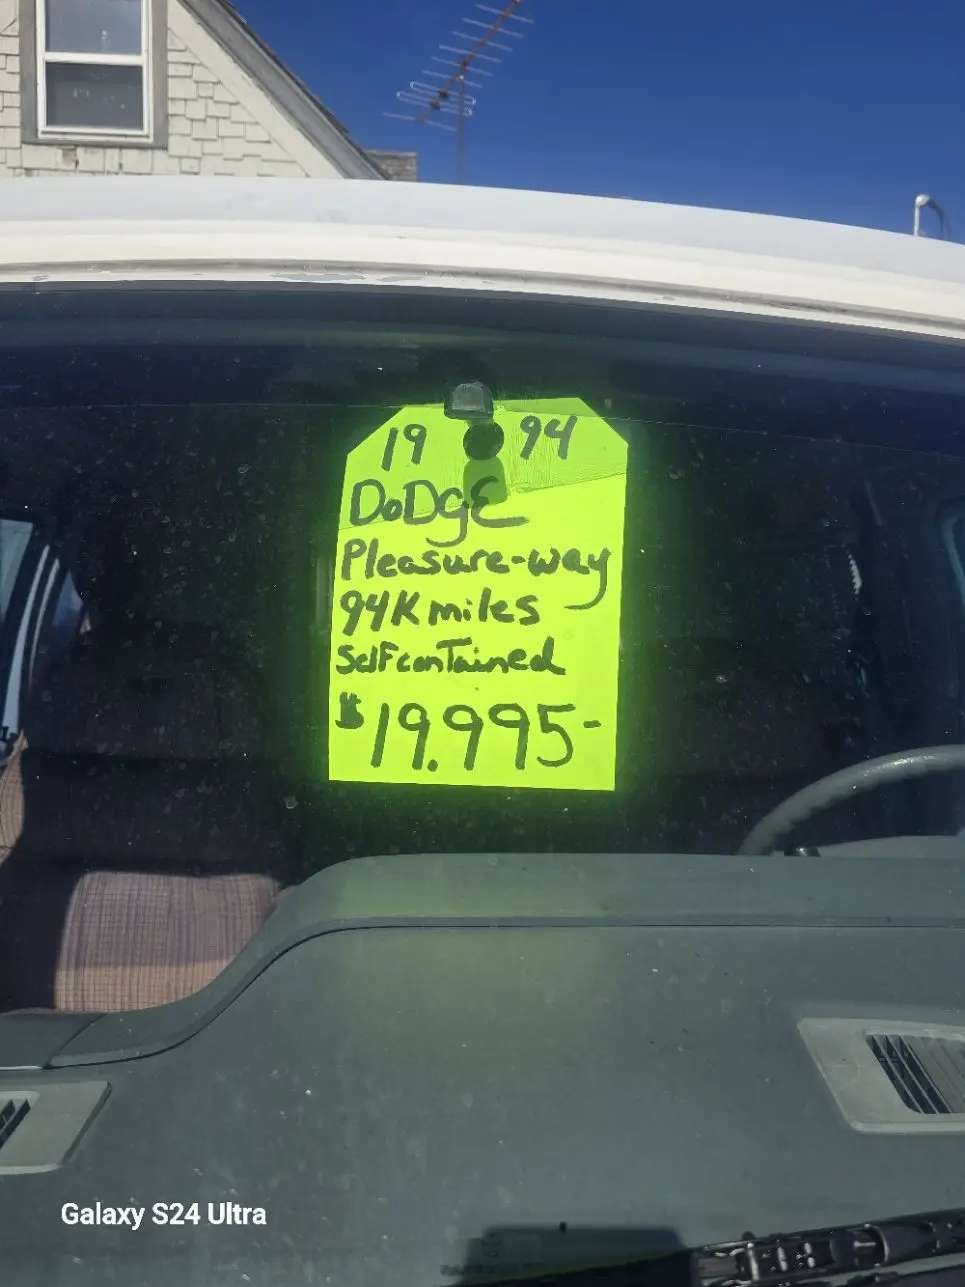 19 94
DoDgE
Pleasure-way
94K miles
Self conTained
$19.995-
Galaxy S24 Ultra